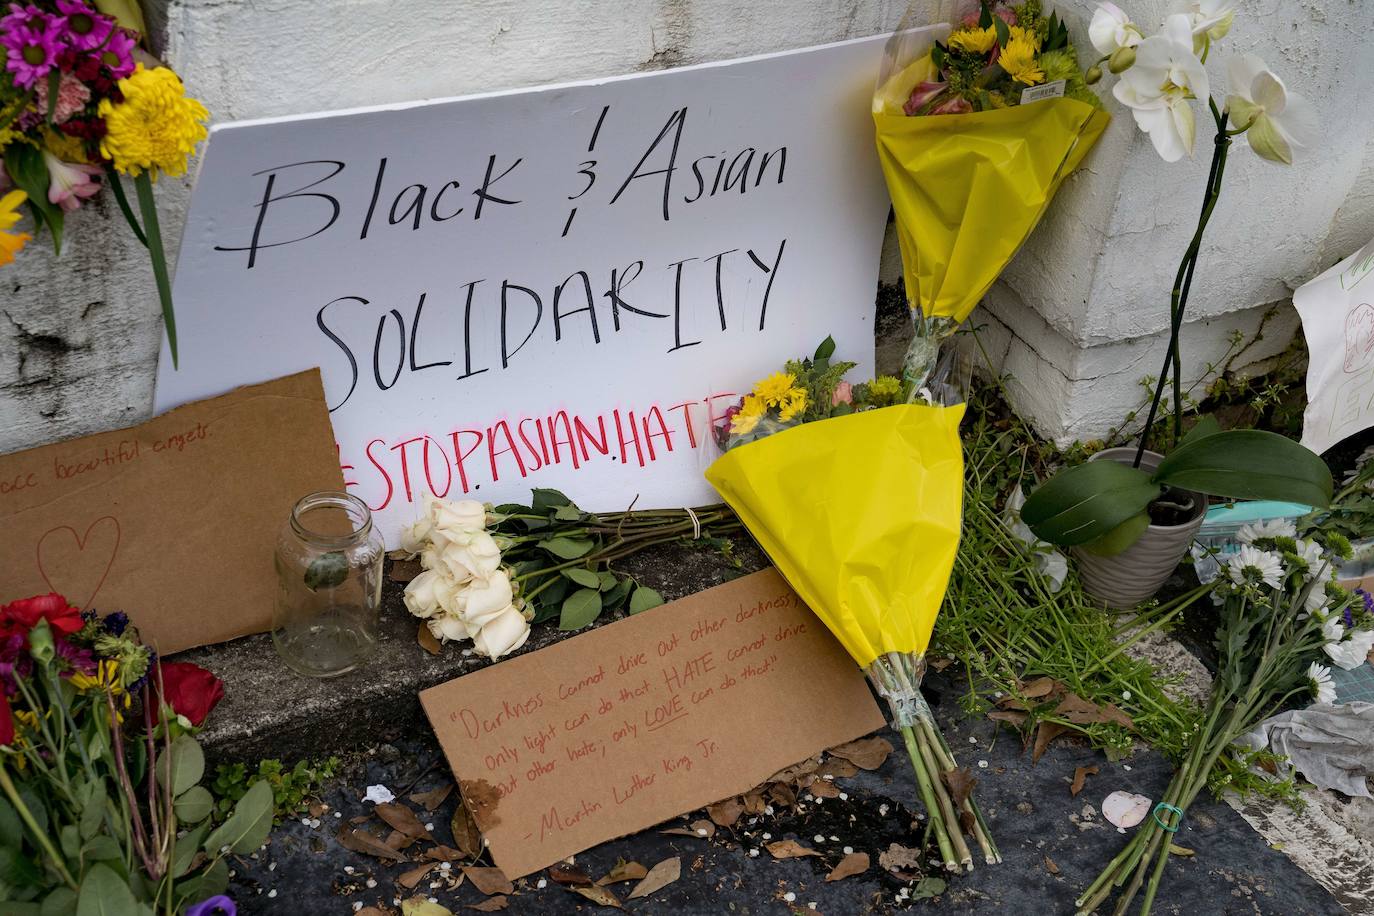 Black & Asian
SOLIDARITY
#STOP.ASIAN.HATE
beautiful angels.
"Darkness cannot drive out other darkness;
only light can do that. HATE cannot drive
out other hate; only LOVE can do that."
- Martin Luther King Jr.